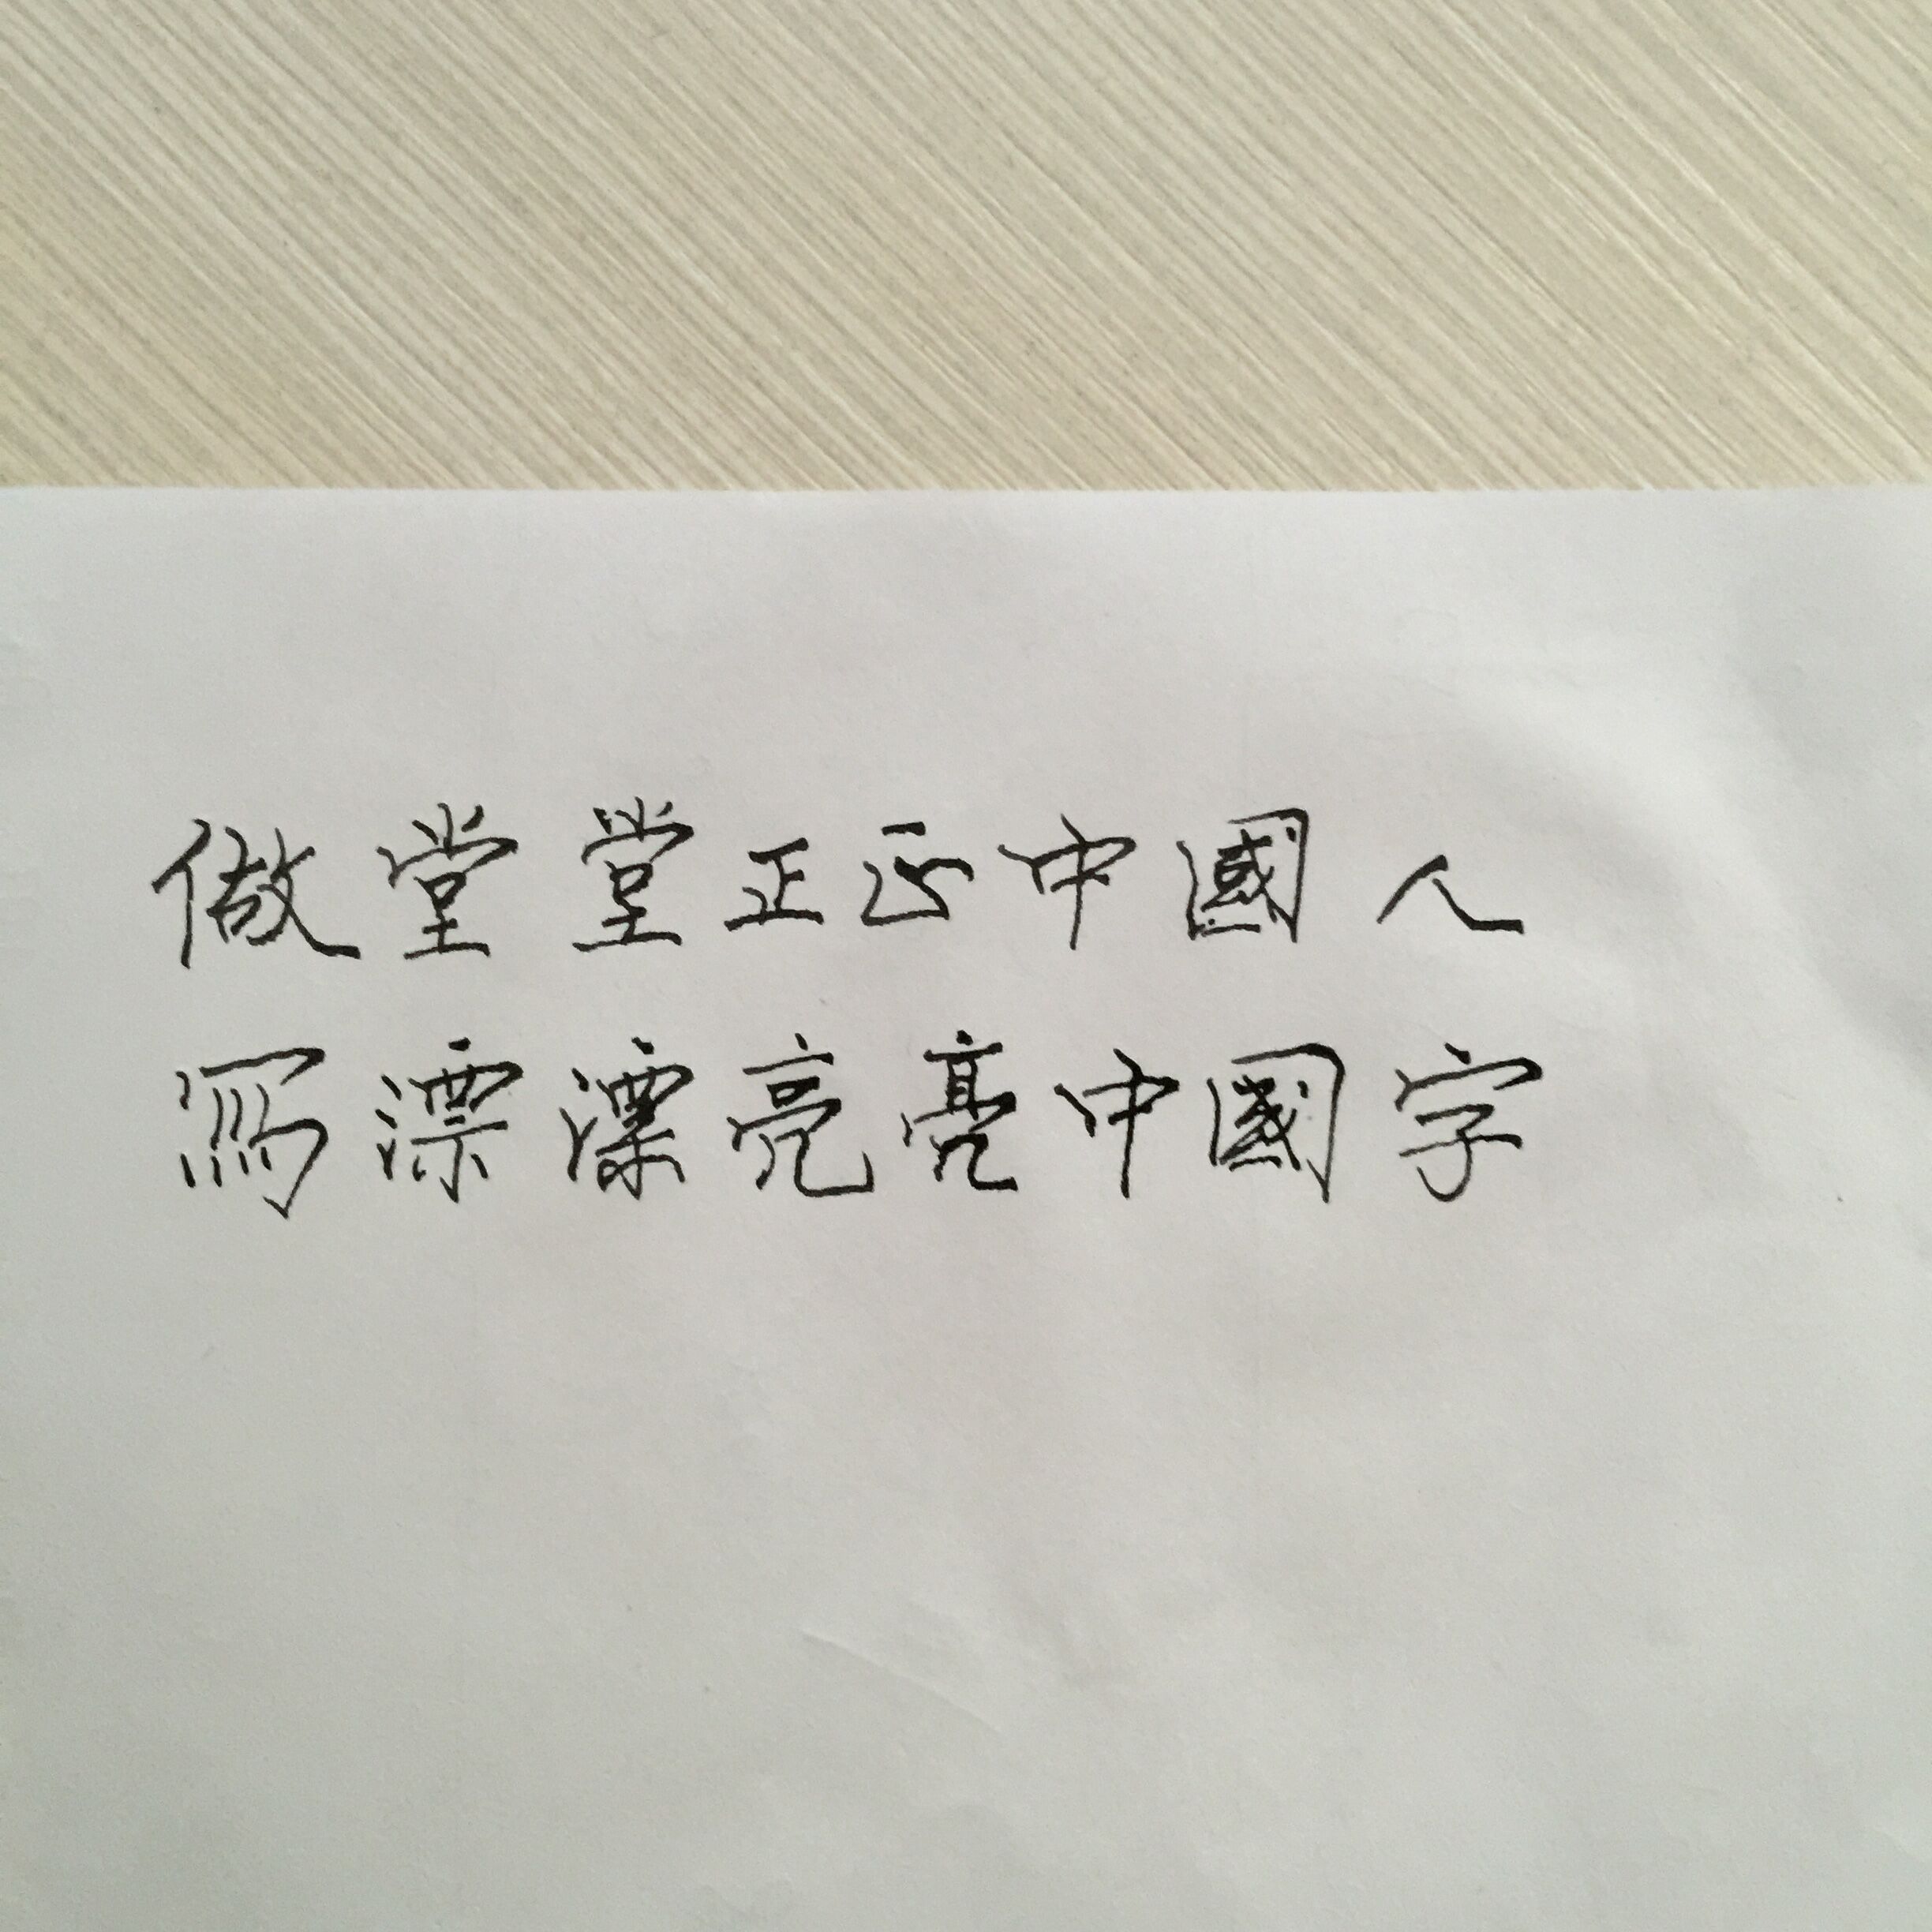 做堂堂正正中國人
寫漂漂亮亮中國字